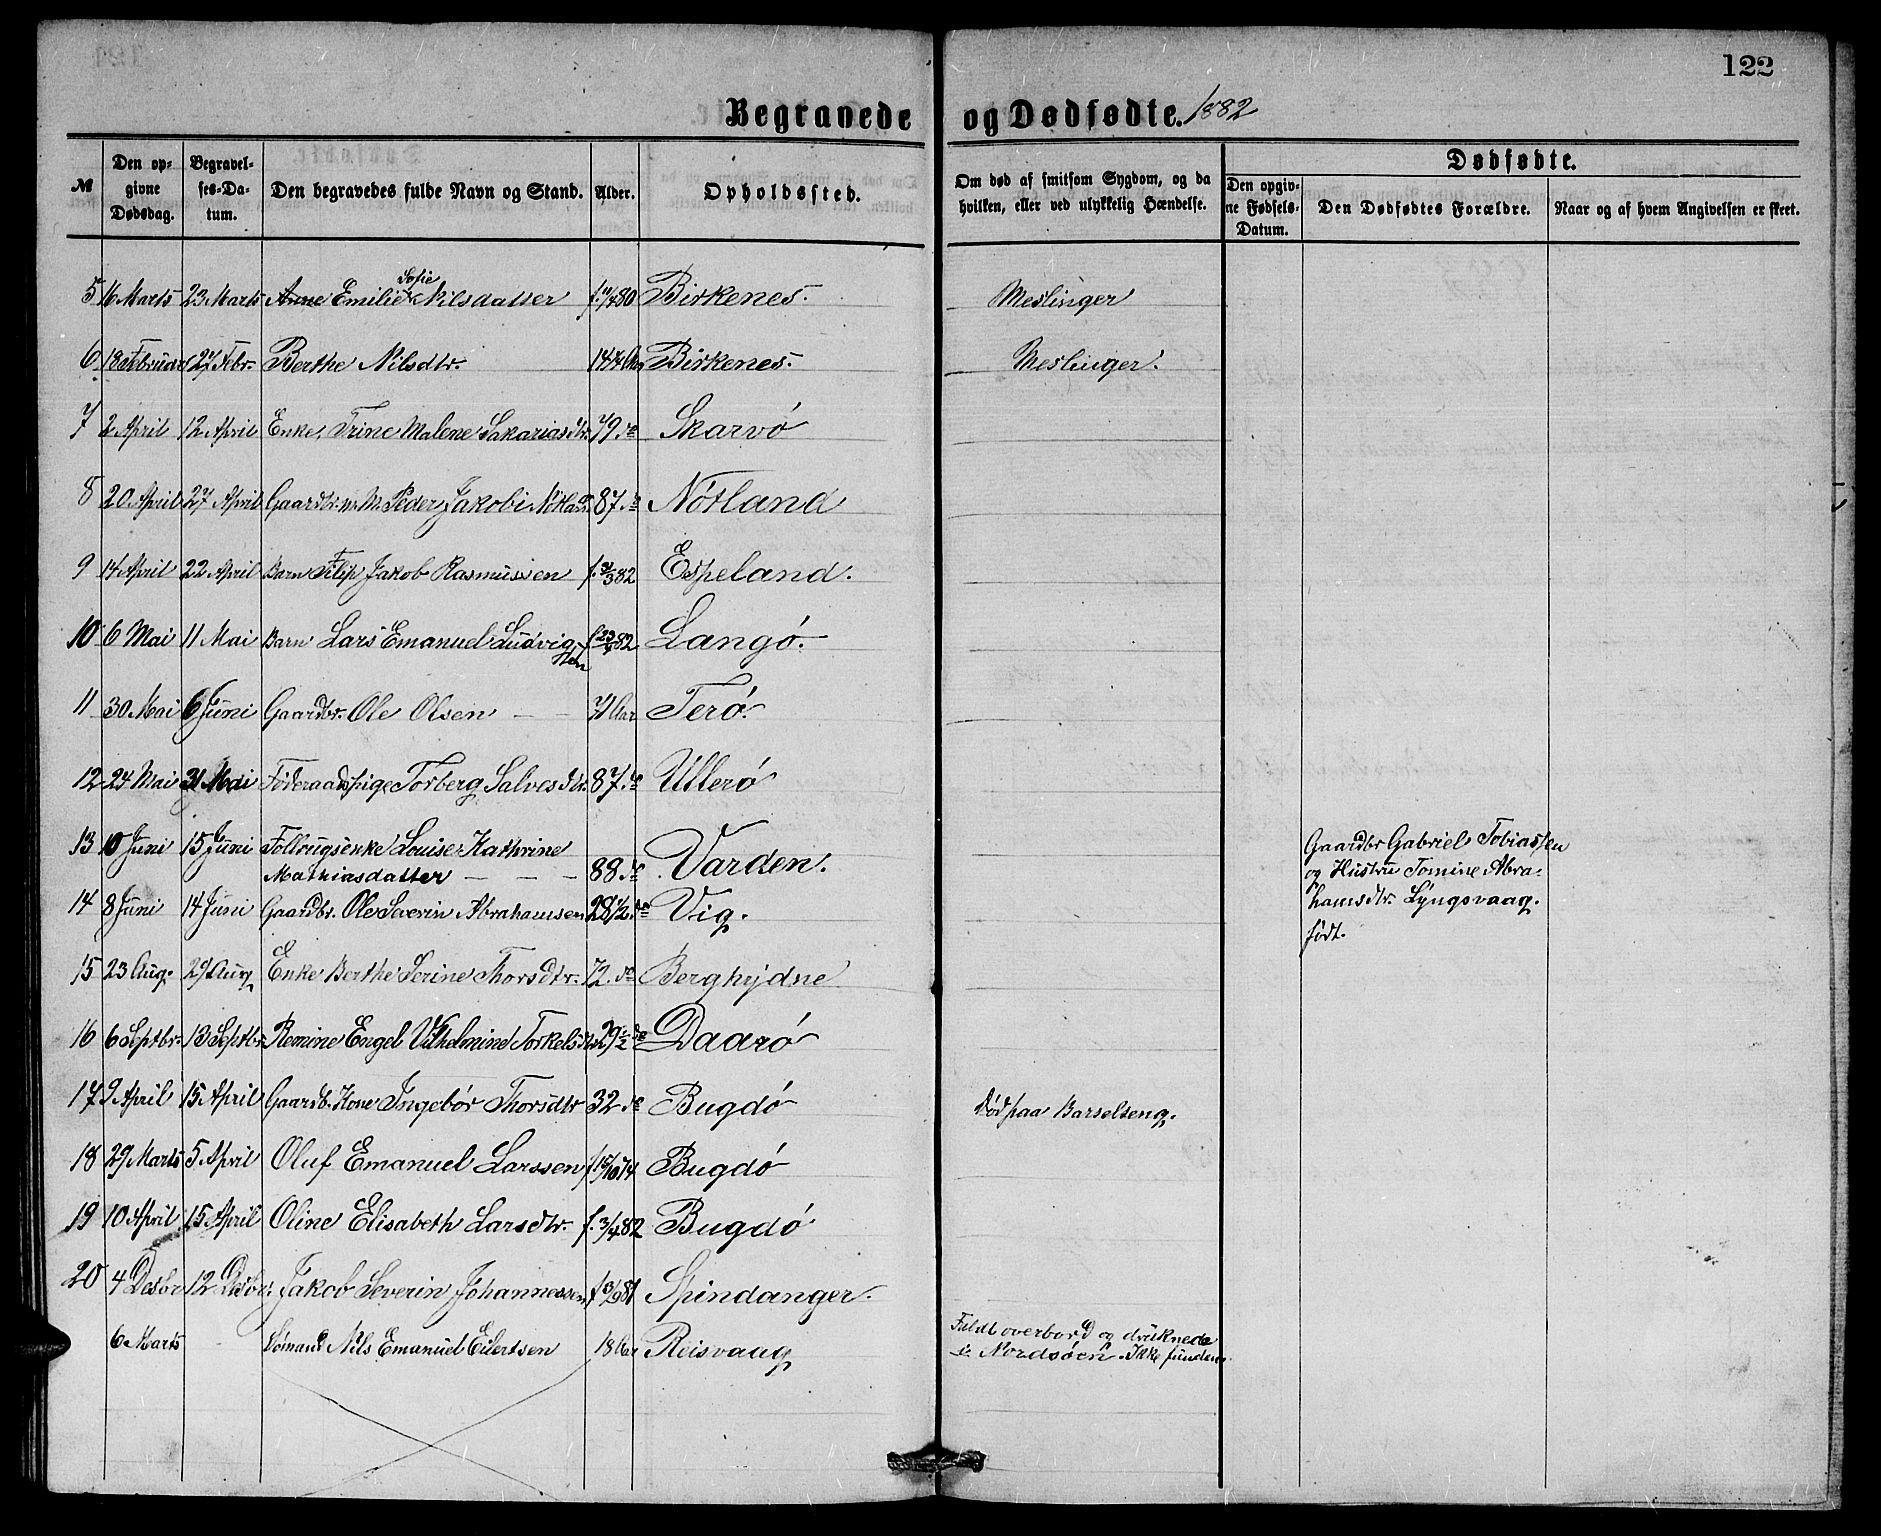 122
Begravede og Dødfødte. 1882
№ | Den opgivne Dødsdag. | Begravelses-Datum. | Den begravedes fulde Navn og Stand. | Alder. | Opholdssted. | Om død af smitsom Sygdom, og da hvilken, eller ved ulykkelig Hændelse. | Dødfødte. | Den opgivne Fødsels-Datum. | Den Dødfødtes Forældre. | Naar og af hvem Angivelsen er skeet.
5 16 Marts 23 Marts Anne Emilie Sofie Nilsdatter Birkenes. Meslinger
6 18 Februar 27 Febr. Berthe Nilsdtr. Birkenes. Meslinger.
7 2 April 12 April Enke, Trine Malene Sakariasdtr. 79 do Skarvö
8 20 April 27 April Gaardbr. Peder Jakobi 87 do Nötland
9 14 April 22 April Barn Filip Jakob Rasmussen f. 31/3 82 Espeland.
10 6 Mai 11 Mai Barn Lars Emanuel Ludvigsen f. 82 Langö.
11 30 Mai 6 Juni Gaardbr. Ole Olsen – – 71 Aar Terö.
12 24 Mai 31 Mai Föderaadspige Torberg Salvesdtr. 87 do Ullerö
13 10 Juni 15 Juni Louise Kathrine
Mathiasdatter – – – 88 do Varden.
Gaardbr Gabriel Tobiassen
og Hustru Tomine Abra-
hamsdtr. Lyngsvaag.
födt.
14 8 Juni 14 Juni Gaardbr. Ole Severin Abrahamsen 28 1/2 do Vig.
15 23 Aug. 29 Aug Enke Berthe Serine Thorsdtr. 72. do Berghydne
16 6 Septbr. 13 Septbr. Remine Engel Vilhelmine Torkelsdtr. 29 1/2 do Daarö
17 9 April 15 April Gaardb. Kone Ingebör Thorsdtr 32 do Bugdö Död paa Barselseng.
18 29 Marts 5 April Oluf Emanuel Larssen f. 15/10 74 Bugdö
19 10 April 15 April Oline Elisabeth Larsdtr. f. 3/4 82 Bugdö
20 4 Desbr 12 Desbr. Jakob Severin Johannessen Spindanger.
6 Marts Sömand Nils Emanuel Eilertsen 18 Aar Reisvaag Faldt overbord og druknede
i Nordsöen. Ikke funden.